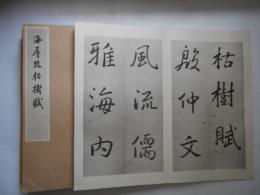 海屋臨枯樹賦
枯樹賦
殷仲文
風流儒
雅海内